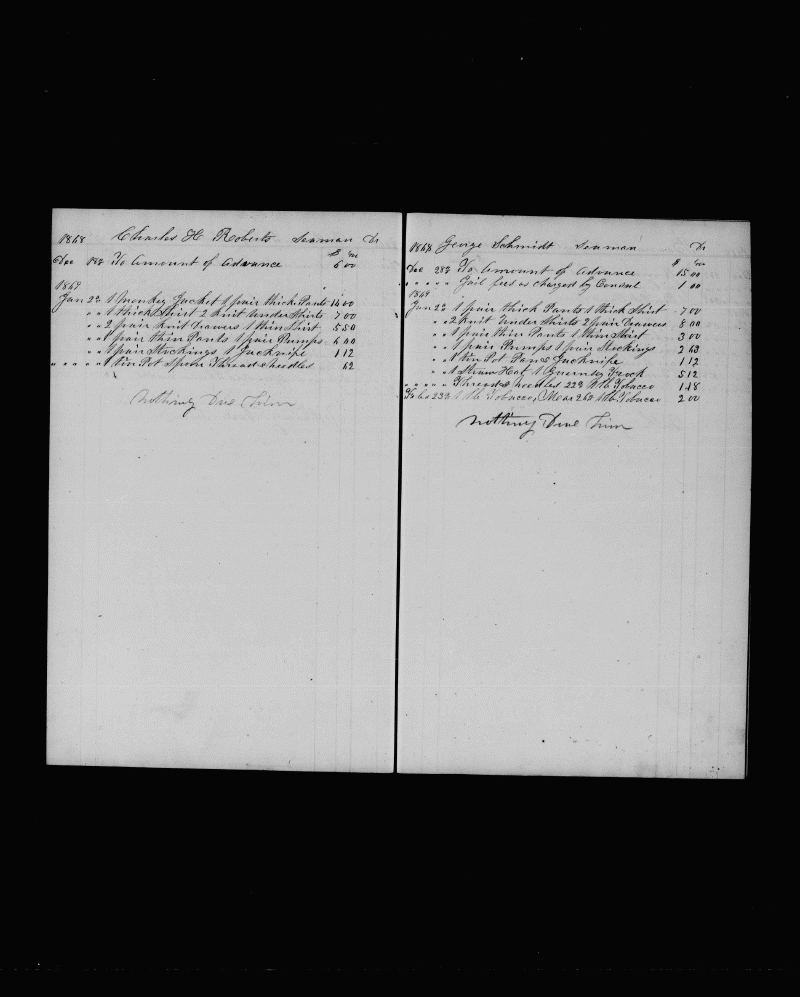 1868 Charles H Roberts Seaman Dr
$ cts
Dec 18th To Amount of Advance 6 00
1869
Jan 2d 1 Monkey Jacket 1 pair thick Pants 14 00
" " 1 thick Shirt 2 Knit under Shirts 7 00
" " 2 pair Knit Drawers 1 thin Shirt 5 50
" " 1 pair thin Pants 1 pair Pumps 6 00
" " 1 pair Stockings 1 Jacknife 1 12
" " " " 1 tin Pot Spoon Thread & needles 62
Nothing Due Him
1868 George Schmidt Seaman Dr
$ cts
Dec 28th To Amount of Advance 15 00
" " " " Jail fees as charged by Consul 1 00
1869
Jan 2d 1 pair thick Pants 1 thick Shirt 7 00
" " 2 Knit under Shirts 2 pair Drawers 8 00
" " 1 pair thin Pants 1 thin Shirt 3 00
" " 1 pair Pumps 1 pair Stockings 2 63
" " 1 tin Pot Pan & Jacknife 1 12
" " 1 Straw Hat 1 Guernsey Frock 5 12
" " " " Thread & needles 22d 1 lb Tobacco 1 48
Feb 23d 1 lb Tobacco, Mar 26th 1 lb Tobacco 2 00
Nothing Due Him